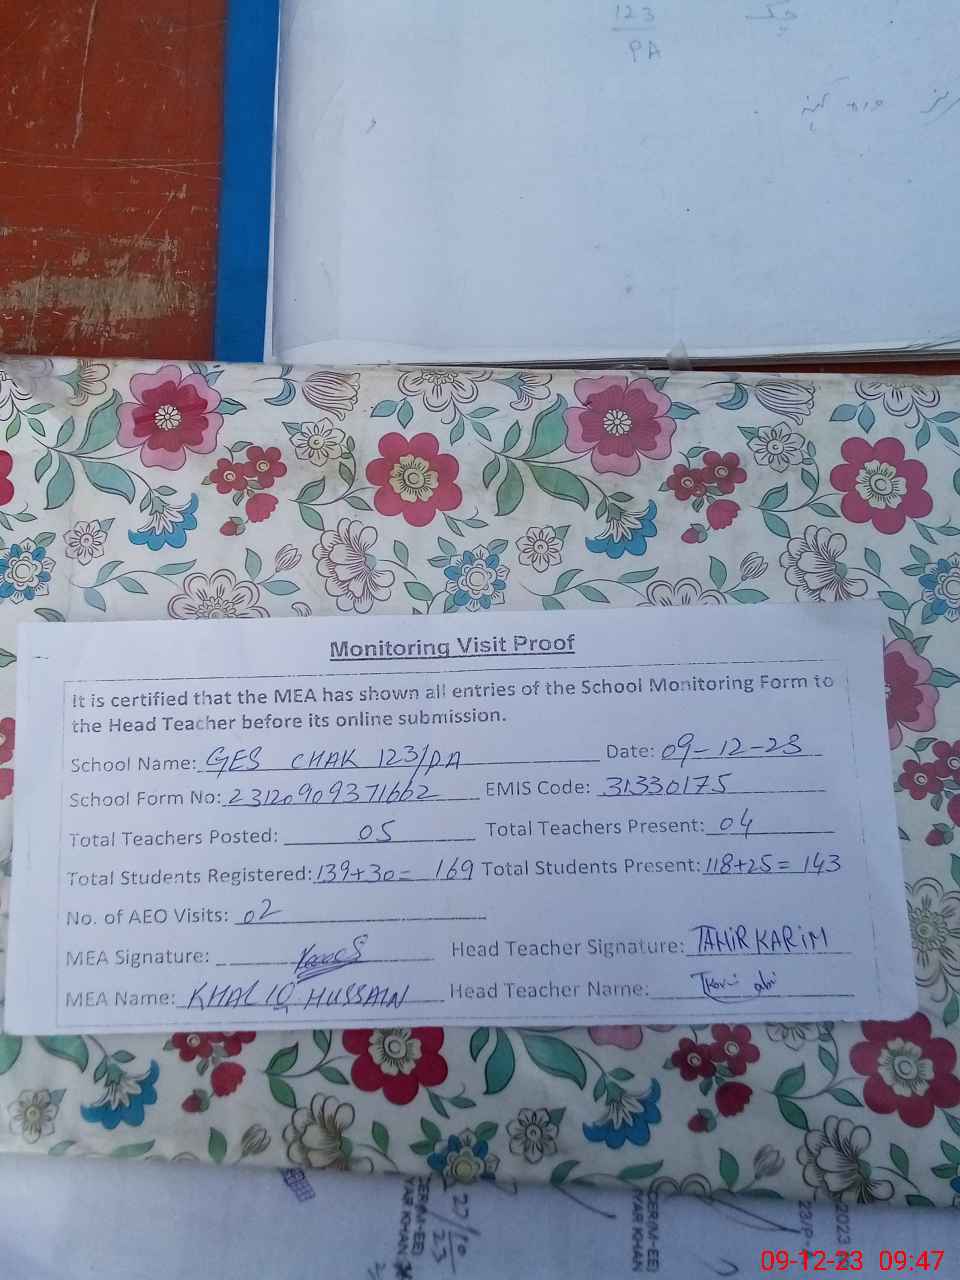 123
PA
چک
Monitoring Visit Proof
It is certified that the MEA has shown all entries of the School Monitoring Form to
the Head Teacher before its online submission.
School Name: GES CHAK 123/PA Date: 09-12-23
School Form No: 23120909371662 EMIS Code: 31330175
Total Teachers Posted: 05 Total Teachers Present: 04
Total Students Registered: 139+30= 169 Total Students Present: 118+25= 143
No. of AEO Visits: 02
MEA Signature: Head Teacher Signature: TAHIR KARIM
MEA Name: KHALIQ HUSSAIN Head Teacher Name:
CER(M-EE)
YAR KHAN
27/10/23
CER(M-EE)
YAR KHAN
2023
23/P
09-12-23 09:47